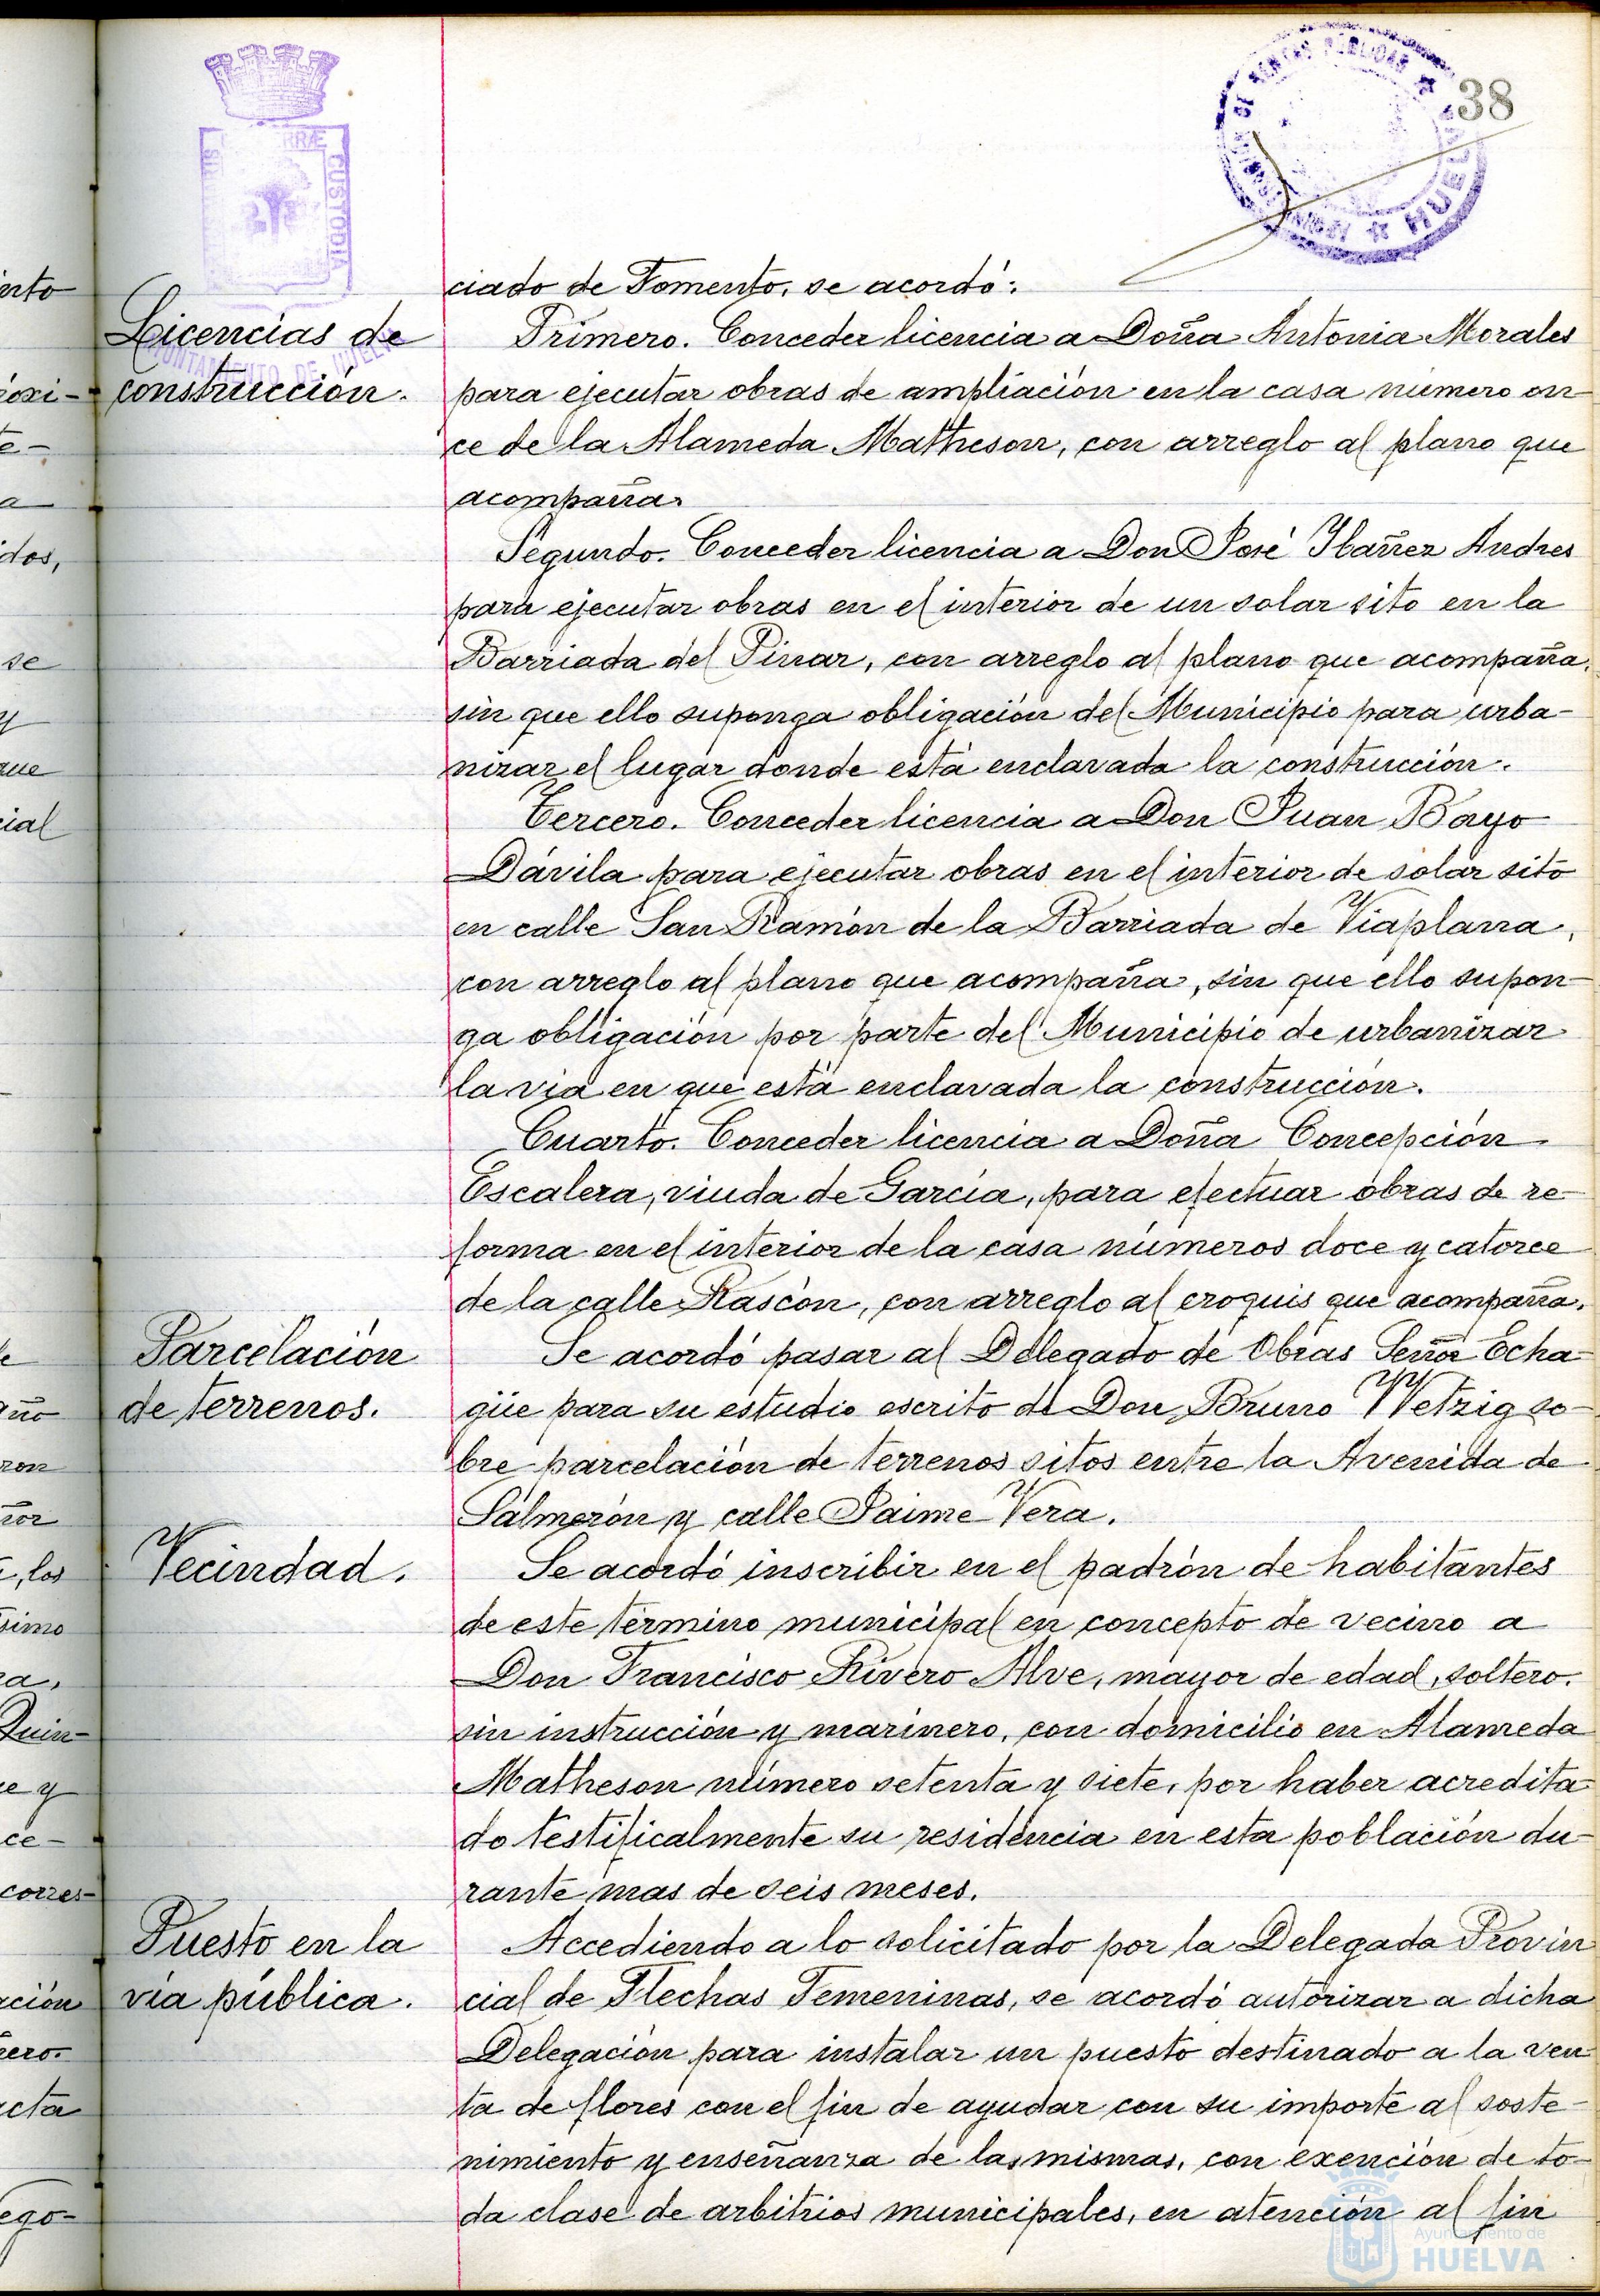 38
ciado de Fomento, se acordó:
Licencias de
construcción.
Primero. Conceder licencia a Doña Antonia Morales
para ejecutar obras de ampliación en la casa número on-
ce de la Alameda Matheson, con arreglo al plano que
acompaña.
Segundo. Conceder licencia a Don José Ybañez Andres
para ejecutar obras en el interior de un solar sito en la
Barriada del Pinar, con arreglo al plano que acompaña,
sin que ello suponga obligación del Municipio para urba-
nizar el lugar donde está enclavada la construcción.
Tercero. Conceder licencia a Don Juan Bayo
Dávila para ejecutar obras en el interior de solar sito
en calle San Ramón de la Barriada de Viaplana,
con arreglo al plano que acompaña, sin que ello supon-
ga obligación por parte del Municipio de urbanizar
la via en que está enclavada la construcción.
Cuarto. Conceder licencia a Doña Concepción
Escalera, viuda de García, para efectuar obras de re-
forma en el interior de la casa números doce y catorce
de la calle Rascón, con arreglo al croquis que acompaña.
Parcelación
de terrenos.
Se acordó pasar al Delegado de Obras Señor Echa-
güe para su estudio escrito de Don Bruno Wetzig so-
bre parcelación de terrenos sitos entre la Avenida de
Salmerón y calle Jaime Vera.
Vecindad.
Se acordó inscribir en el padrón de habitantes
de este término municipal en concepto de vecino a
Don Francisco Rivero Alve, mayor de edad, soltero,
sin instrucción y marinero, con domicilio en Alameda
Matheson número setenta y siete, por haber acredita-
do testificalmente su residencia en esta población du-
rante mas de seis meses.
Puesto en la
vía pública.
Accediendo a lo solicitado por la Delegada Provin
cial de Flechas Femeninas, se acordó autorizar a dicha
Delegación para instalar un puesto destinado a la ven
ta de flores con el fin de ayudar con su importe al soste-
nimiento y enseñanza de las mismas, con exención de to-
da clase de arbitrios municipales, en atención al fin
Ayuntamiento de
HUELVA